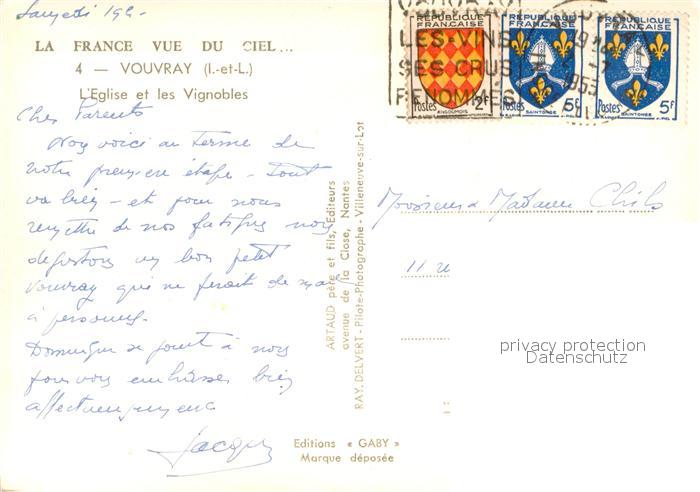 Samedi 19h-
LA FRANCE VUE DU CIEL...
4 — VOUVRAY (I.-et-L.)
L'Eglise et les Vignobles
Chers Parents
Nous voici au terme de
notre première étape - Tout
va bien - et pour nous
remettre de nos fatigues nous
dégustons un bon petit
vouvray qui ne ferait de mal
à personne.
Dominique se joint à moi
pour vous embrasser bien
affectueusement
Jacques
Editions « GABY »
Marque déposée
ARTAUD père et fils, Editeurs
avenue de la Close, Nantes
RAY. DELVERT - Pilote-Photographe - Villeneuve-sur-Lot
REPUBLIQUE FRANÇAISE
Postes 2F
ANGOUMOIS
REPUBLIQUE FRANÇAISE
Postes 5F
SAINTONGE
REPUBLIQUE FRANÇAISE
Postes 5F
SAINTONGE
LES VINS
SES CRUS
RENOMMES
Monsieur & Madame
11 r
privacy protection
Datenschutz